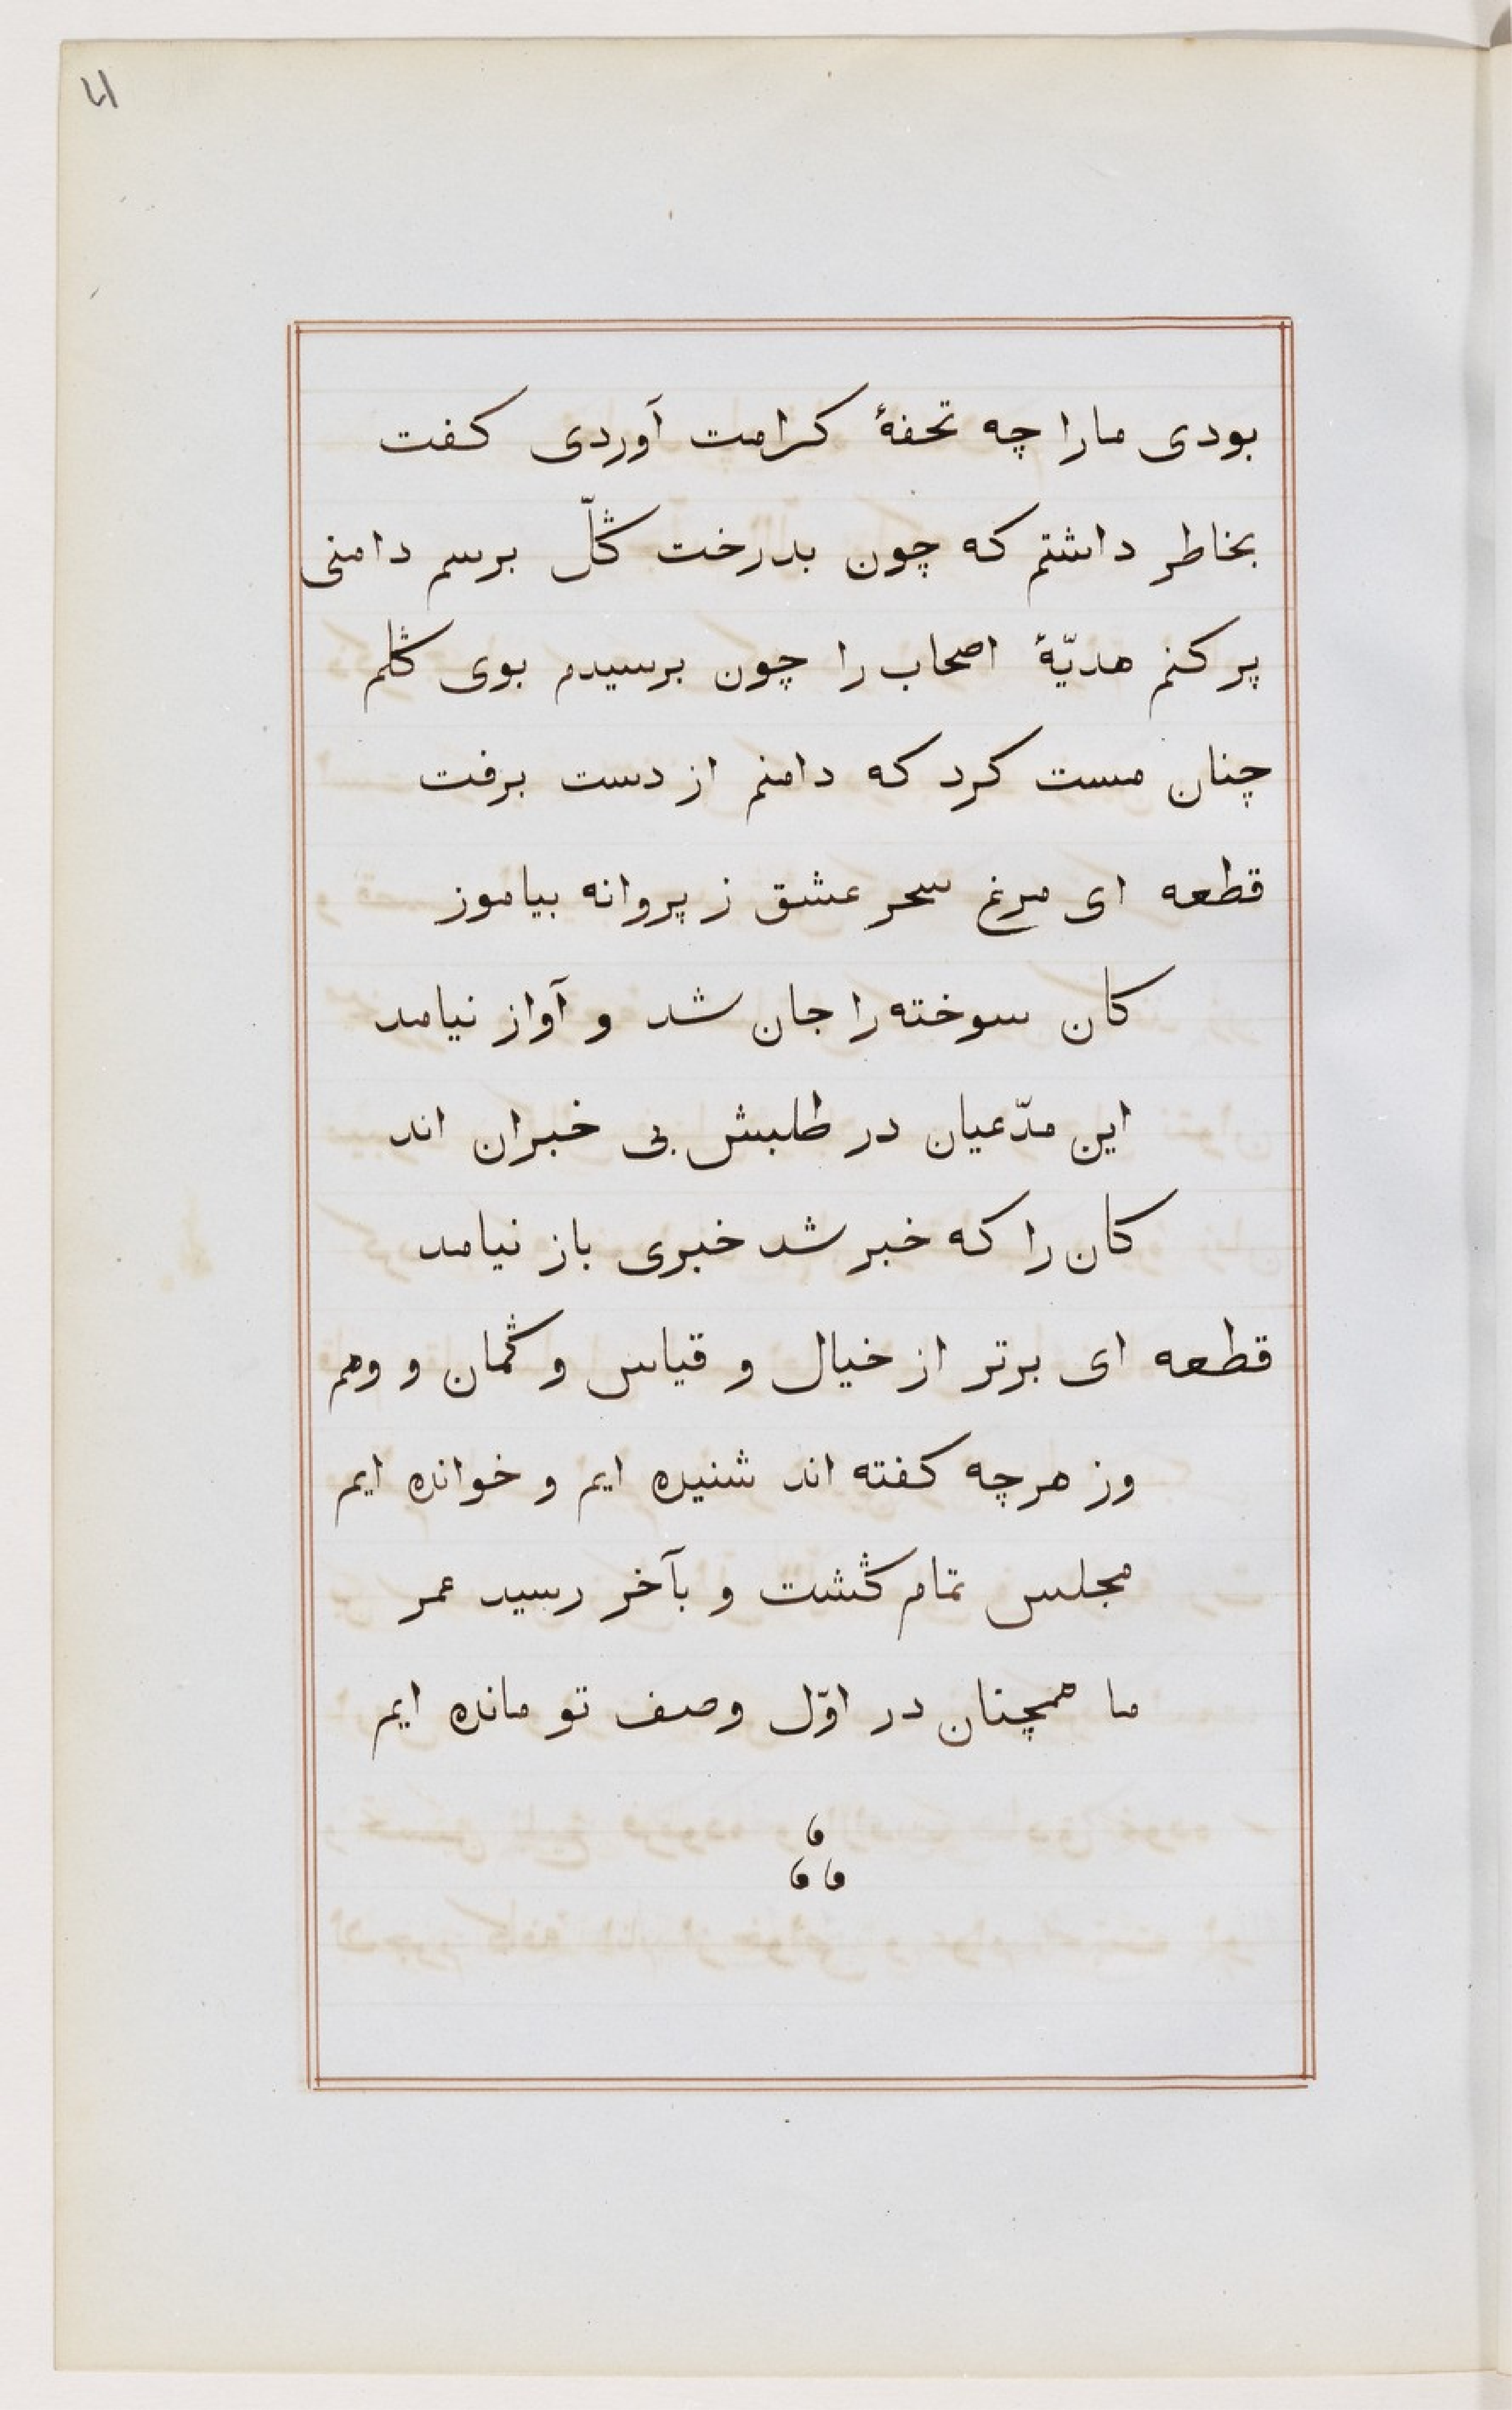 بودی مارا چه تحفهٔ کرامت آوردی کفت
بخاطر داشتم که چون بدرخت ڭلّ برسم دامنی
پر کنم هدیّهٔ اصحاب را چون برسیدم بوی ڭلم
چنان مست کرد که دامنم از دست برفت
قطعه ای مرغ سحر عشق ز پروانه بیاموز
کان سوخته را جان شد و آواز نیامد
این مدّعیان در طلبش بی خبران اند
کان را که خبر شد خبری باز نیامد
قطعه ای برتر از خیال و قیاس و ڭمان و وهم
وز هرچه کفته اند شنیده ایم و خوانده ایم
مجلس تمام ڭشت و بآخر رسید عمر
ما همچنان در اوّل وصف تو مانده ایم